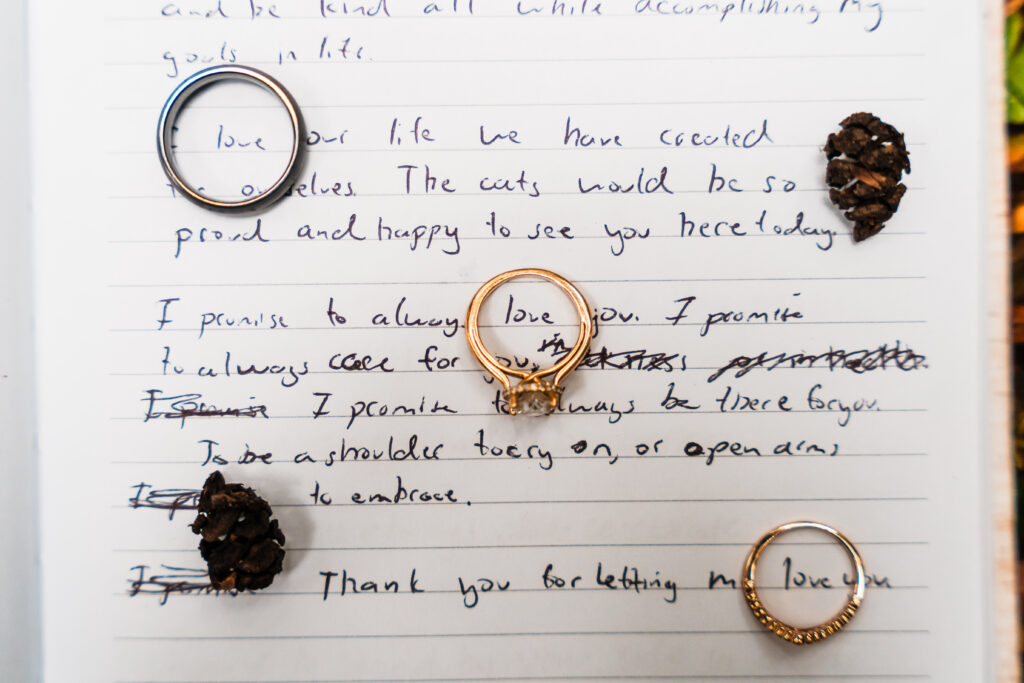 and be kind all while accomplishing my
goals in life.
I love our life we have created
for ourselves. The cats would be so
proud and happy to see you here today.
I promise to always love you. I promise
to always care for you, in
I promise I promise to always be there for you.
To be a shoulder to cry on, or open arms
to embrace.
Thank you for letting me love you